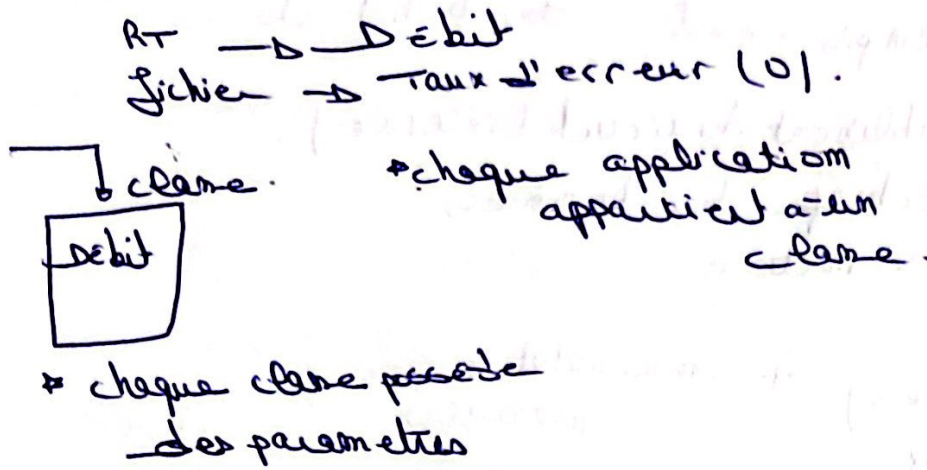 RT → Débit
fichier → Taux d'erreur (0).
classe.
Débit
* chaque application
appartient à un
classe.
* chaque classe possède
des parametres